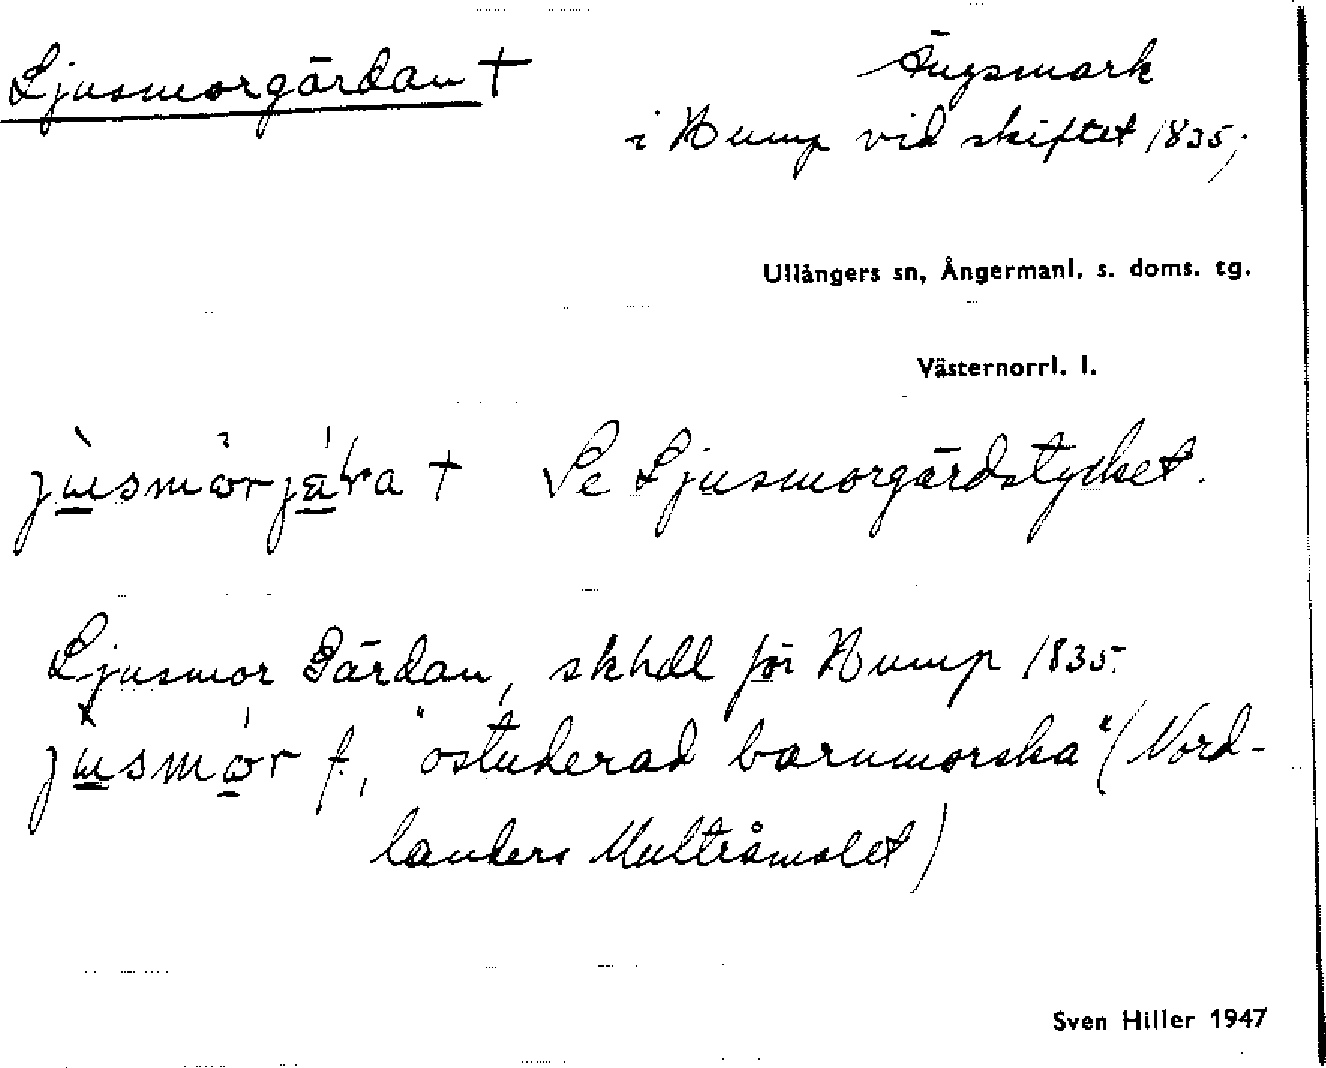 Ljusmorgärdan †
Ängsmark
i Hump vid skiftet 1835;
Ullångers sn, Ångermanl. s. doms. tg.
Västernorrl. l.
† Se Ljusmorgärdstycket.
Ljusmor Gärdan, skhdl för Hump 1835.
f., "ostuderad barnmorska" (Nord-
landers Multråmålet)
Sven Hiller 1947